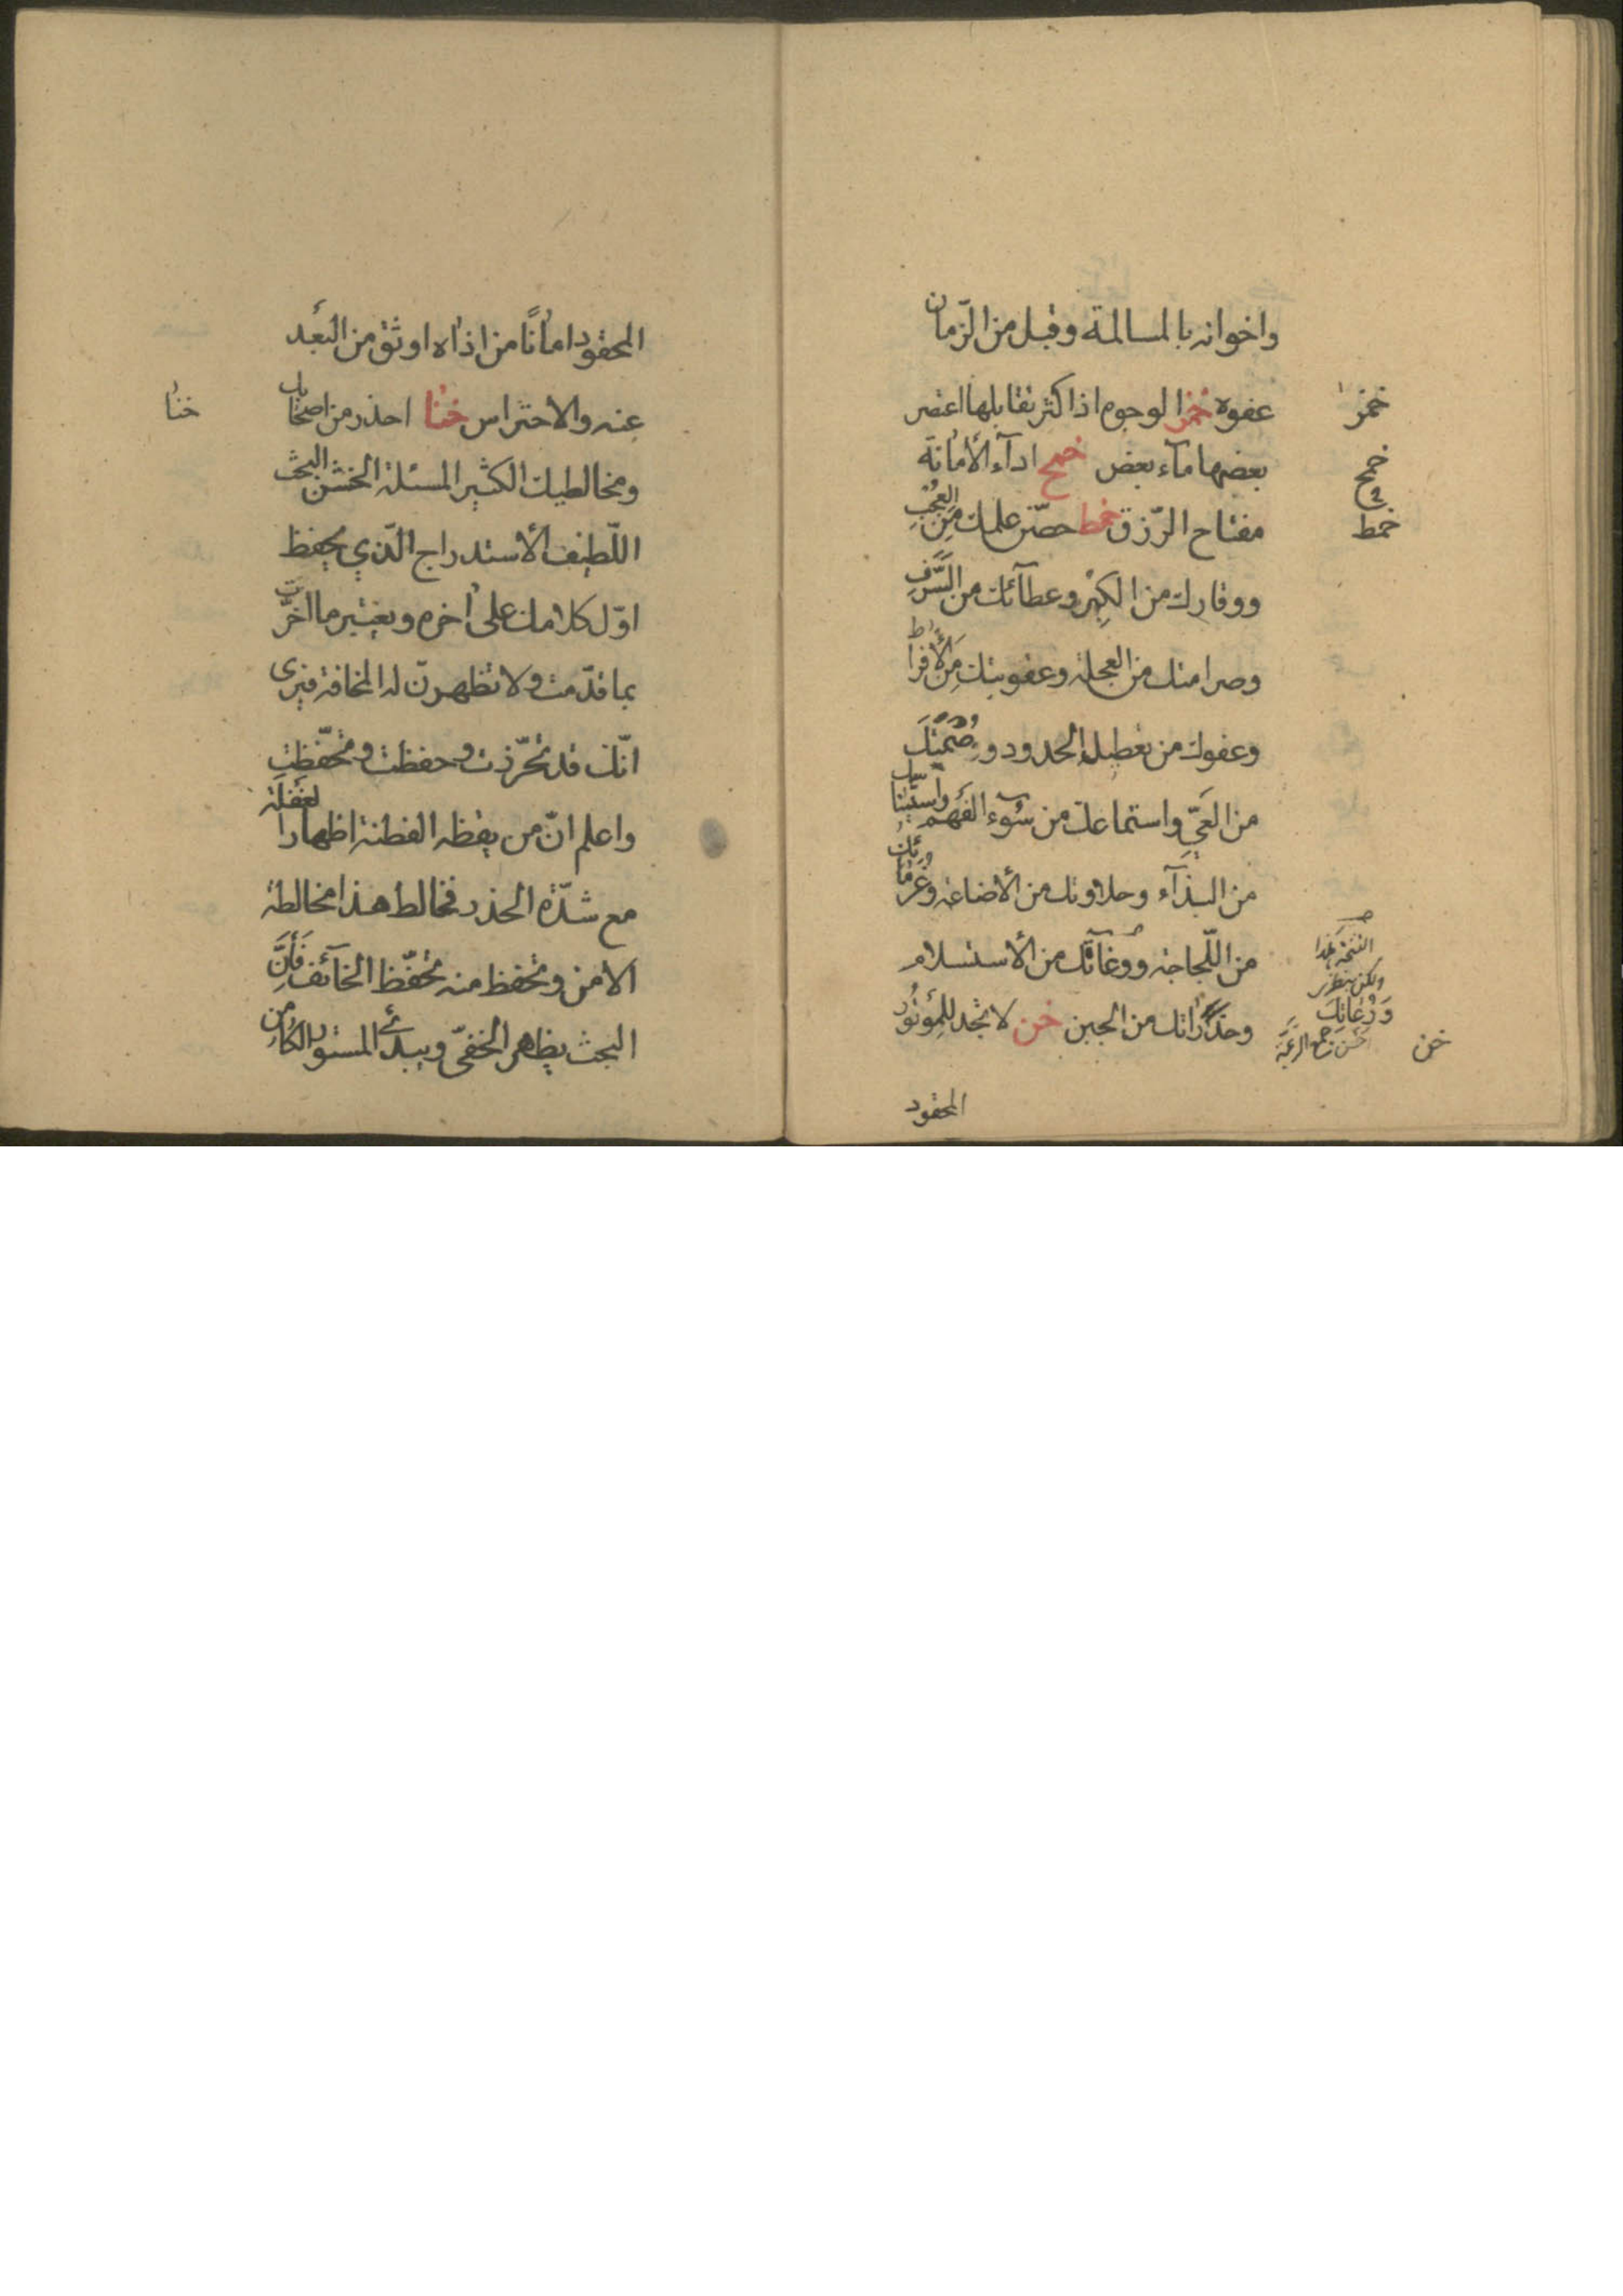 واخوانه بالمسالمة وقبل من الزّمان
عفوه خمزا لوجوم اذا كثر تقابلها اعتصر
خمزا
بعضها مآء بعض خمح ادآء الأمانة
خمح
مفتاح الرّزق خمط حصّن علمك من العُجْبِ
خمط
ووقارك من الكِبْر وعطآئك من السَّرَفِ
وصرامتك من العجلة وعقوبتك مِنَ الأفراط
وعفوك من تعطيل الحدود وصَمْتَكَ
من العَيِّ واستماعك من سُوء الفَهم واستيناسك
من البذآء وخلاوتك من الأضاعة وغرماتك
من اللّجاجة وروغآتك من الأستسلام
النسخة هكذا
ولكن ينظر
وَرَوَغاتِكَ
وحذاراتك من الجبن خن لا تجد للموتور
خن
المحقود
المحقود امانًا من اذاه اوثق من البُعد
عنه والاحتراس خنا احذر من اصحابك
خنا
ومخالطيك الكثير المسئلة الخشن البحث
اللّطيف الأستدراج الّذي يحفظ
اوّل كلامك على اخره ويعتبر ما اخّرت
بما قدّمت ولا تظهرنّ له المخافة فيرى
انّك قد تحرّزت وحفظت وتحفّظت
واعلم انّ من يقظه الفطنة اظهار الغفلة
مع شدّة الحذر فخالط هذا مخالطة
الامن وتحفظ منه تحفّظ الخآئف فَأِنَّ
البحث يظهر الخفىّ ويبدئ المستور الكامن